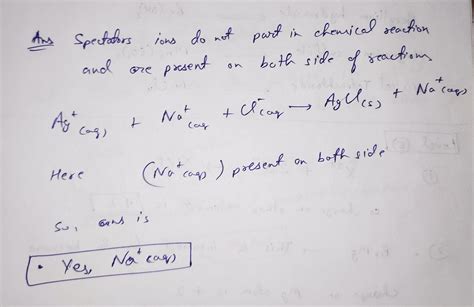 Ans Spectators ions do not part in chemical reaction
and are present on both side of reactions
Ag⁺(aq) + Na⁺(aq + Cl⁻(aq → AgCl(s) + Na⁺(aq)
Here (Na⁺(aq) ) present on both side
So, ans is
• Yes, Na⁺(aq)